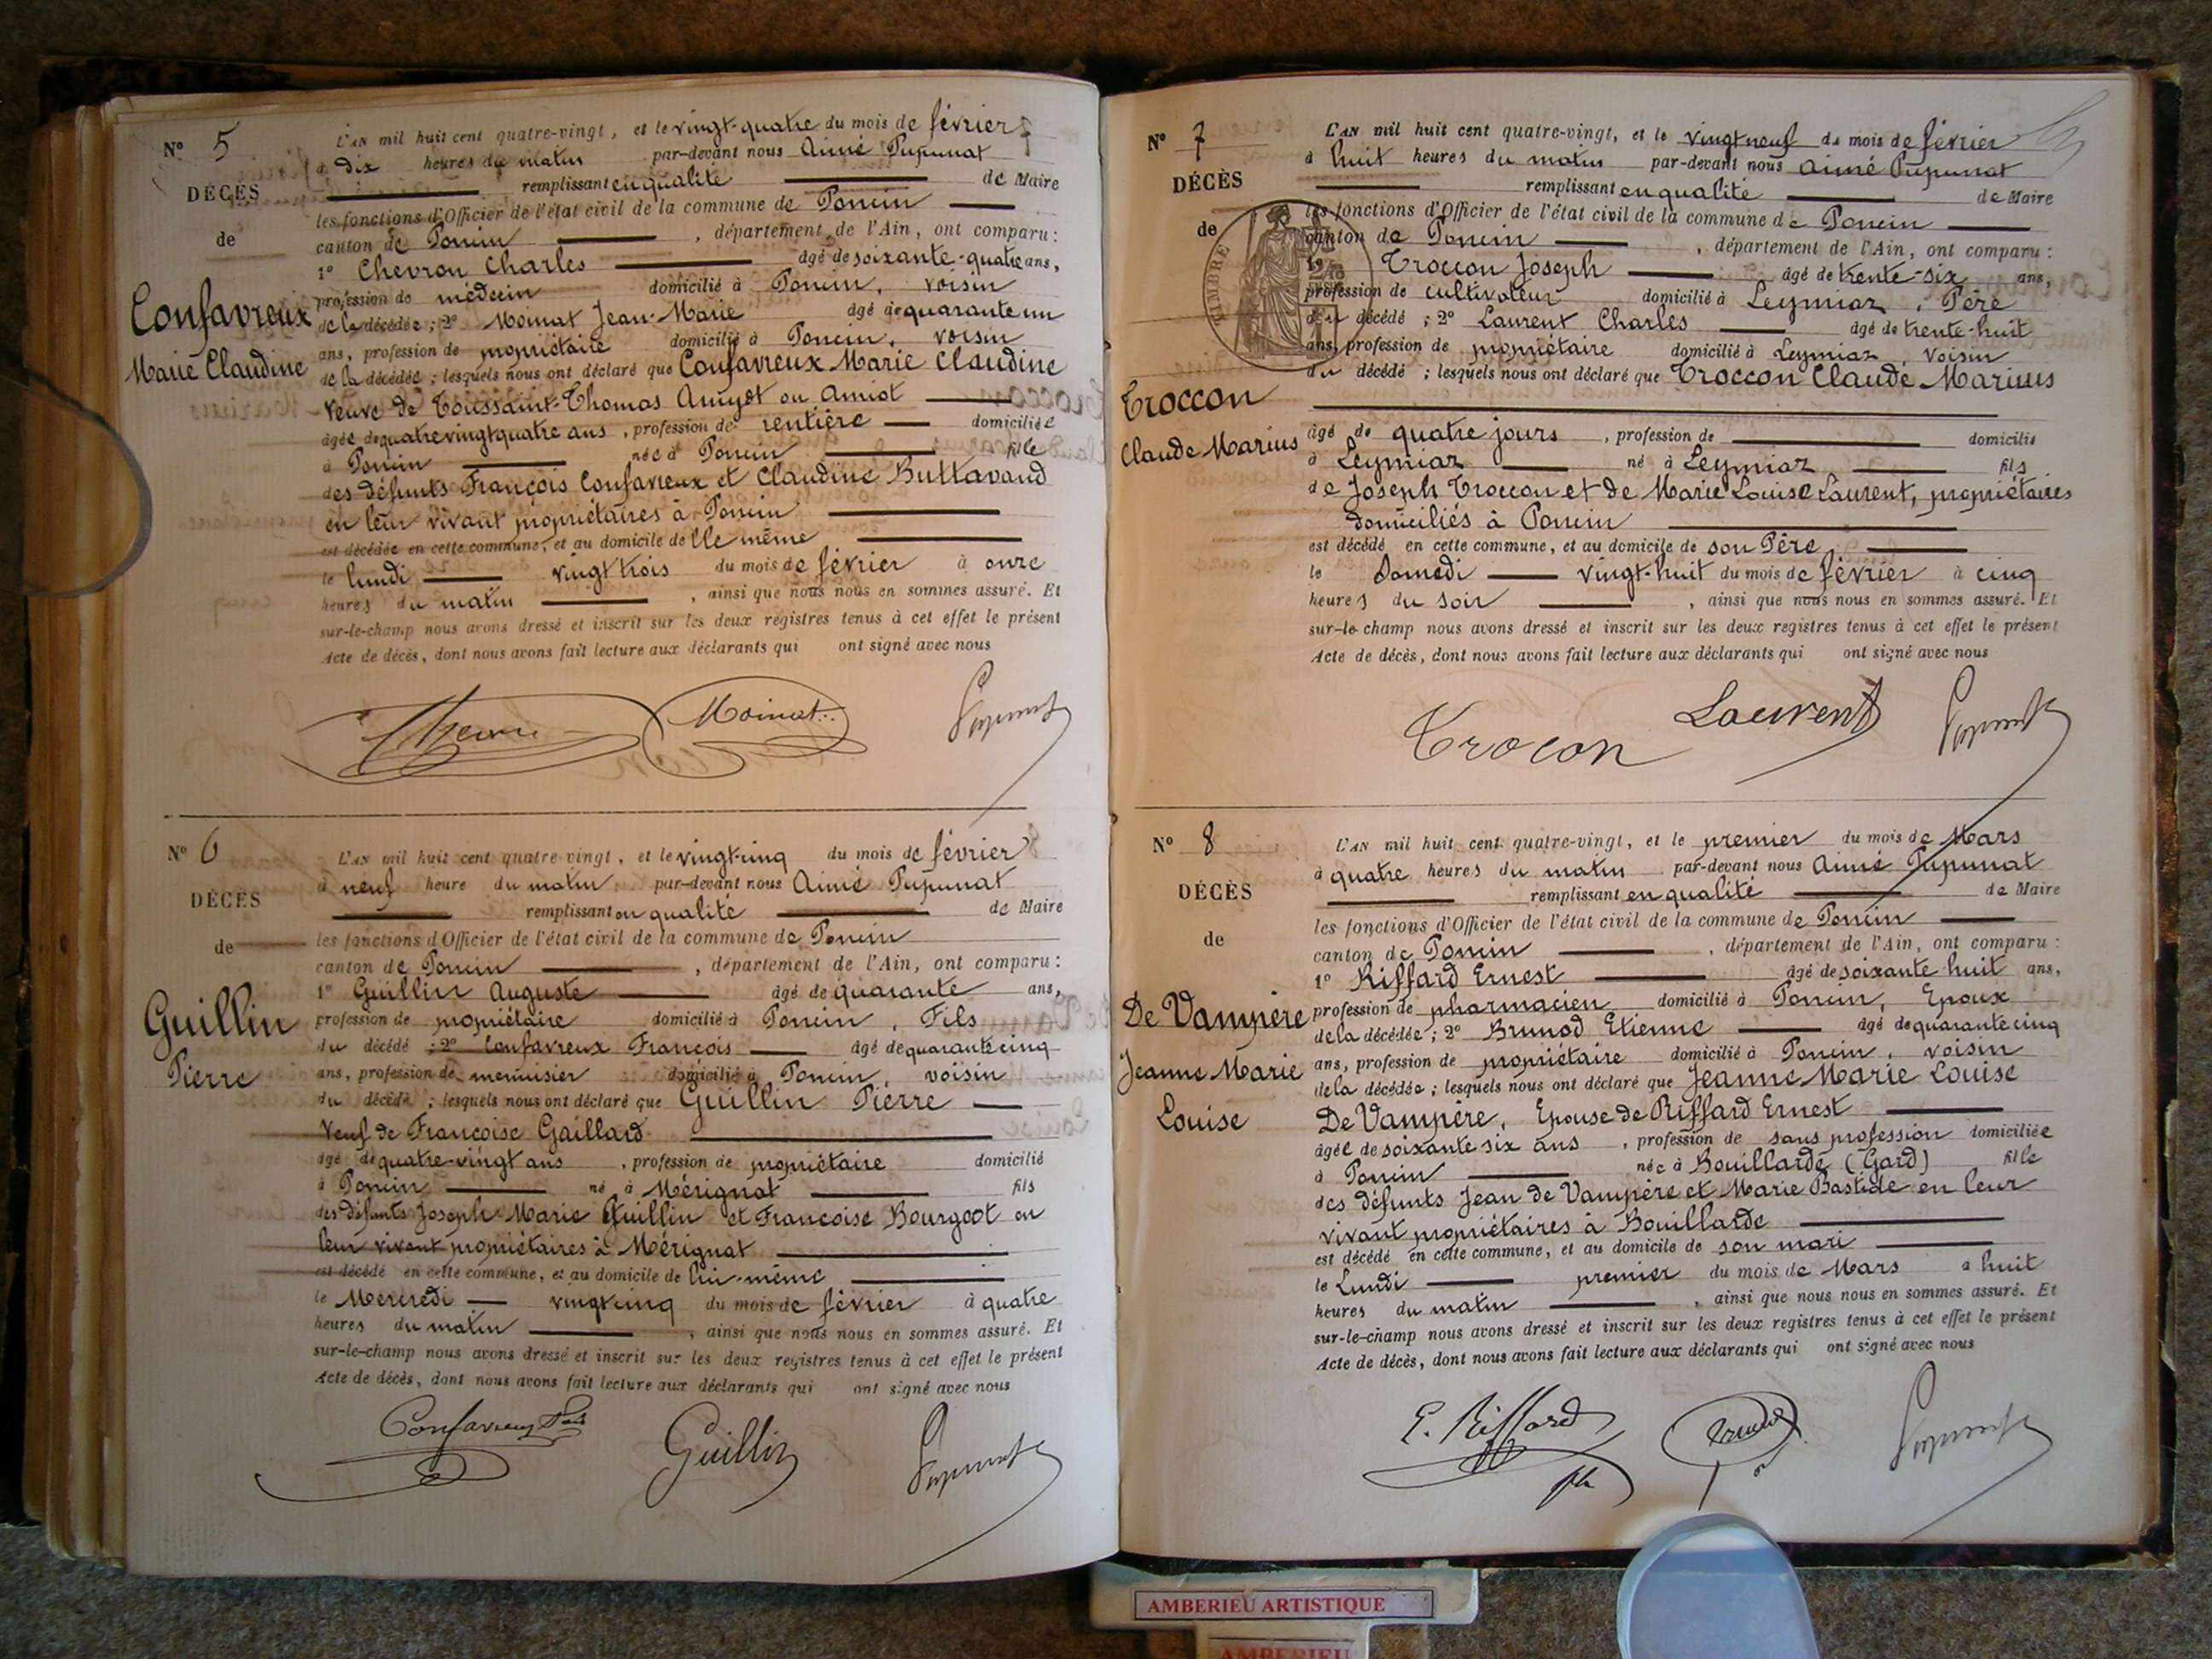 N° 5
DÉCÈS
de
Confavreux
Marie Claudine
L'AN mil huit cent quatre-vingt, et le vingt-quatre du mois de février
à dix heures du matin par-devant nous Aimé Pupunat
remplissant en qualité de Maire
les fonctions d'Officier de l'état civil de la commune de Poncin
canton de Poncin, département de l'Ain, ont comparu :
1° Chevron Charles âgé de soixante-quatre ans,
profession de médecin domicilié à Poncin, voisin
de la décédée ; 2° Moinat Jean-Marie âgé de quarante un
ans, profession de propriétaire domicilié à Poncin, voisin
de la décédée ; lesquels nous ont déclaré que Confavreux Marie Claudine
veuve de Toussaint-Thomas Amyot ou Amiot
âgée de quatre vingt quatre ans, profession de rentière domiciliée
à Poncin née à Poncin fille
des défunts François Confavreux et Claudine Buttavand
en leur vivant propriétaires à Poncin
est décédée en cette commune, et au domicile de lle même
le lundi vingt trois du mois de février à onze
heures du matin, ainsi que nous nous en sommes assuré. Et
sur-le-champ nous avons dressé et inscrit sur les deux registres tenus à cet effet le présent
Acte de décès, dont nous avons fait lecture aux déclarants qui ont signé avec nous
Moinat Pupunat
N° 6
DÉCÈS
de
Guillin
Pierre
L'AN mil huit cent quatre-vingt, et le vingt-cinq du mois de février
à neuf heure du matin par-devant nous Aimé Pupunat
remplissant en qualité de Maire
les fonctions d'Officier de l'état civil de la commune de Poncin
canton de Poncin, département de l'Ain, ont comparu :
1° Guillin Auguste âgé de quarante ans,
profession de propriétaire domicilié à Poncin, Fils
du décédé ; 2° Confavreux François âgé de quarante cinq
ans, profession de menuisier domicilié à Poncin, voisin
du décédé ; lesquels nous ont déclaré que Guillin Pierre
Veuf de Françoise Gaillard
âgé de quatre-vingt ans, profession de propriétaire domicilié
à Poncin né à Mérignat fils
des défunts Joseph Marie Guillin et Françoise Bourgeot en
leur vivant propriétaires à Mérignat
est décédé en cette commune, et au domicile de lui-même
le Mercredi vingt cinq du mois de février à quatre
heures du matin, ainsi que nous nous en sommes assuré. Et
sur-le-champ nous avons dressé et inscrit sur les deux registres tenus à cet effet le présent
Acte de décès, dont nous avons fait lecture aux déclarants qui ont signé avec nous
Confavreux Guillin Pupunat
N° 7
DÉCÈS
de
TIMBRE
Troccon
Claude Marius
L'AN mil huit cent quatre-vingt, et le vingt neuf du mois de février
à huit heures du matin par-devant nous Aimé Pupunat
remplissant en qualité de Maire
les fonctions d'Officier de l'état civil de la commune de Poncin
canton de Poncin, département de l'Ain, ont comparu :
1° Troccon Joseph âgé de trente-six ans,
profession de cultivateur domicilié à Leymiaz, Père
du décédé ; 2° Laurent Charles âgé de trente-huit
ans, profession de propriétaire domicilié à Leymiaz, voisin
du décédé ; lesquels nous ont déclaré que Troccon Claude Marius
âgé de quatre jours, profession de domicilié
à Leymiaz né à Leymiaz fils
de Joseph Troccon et de Marie Louise Laurent, propriétaires
domiciliés à Poncin
est décédé en cette commune, et au domicile de son Père
le Samedi vingt-huit du mois de février à cinq
heures du soir, ainsi que nous nous en sommes assuré. Et
sur-le-champ nous avons dressé et inscrit sur les deux registres tenus à cet effet le présent
Acte de décès, dont nous avons fait lecture aux déclarants qui ont signé avec nous
Trocon Laurent Pupunat
N° 8
DÉCÈS
de
De Vampère
Jeanne Marie
Louise
L'AN mil huit cent quatre-vingt, et le premier du mois de Mars
à quatre heures du matin par-devant nous Aimé Pupunat
remplissant en qualité de Maire
les fonctions d'Officier de l'état civil de la commune de Poncin
canton de Poncin, département de l'Ain, ont comparu :
1° Riffard Ernest âgé de soixante huit ans,
profession de pharmacien domicilié à Poncin, Epoux
de la décédée ; 2° Brunod Etienne âgé de quarante cinq
ans, profession de propriétaire domicilié à Poncin, voisin
de la décédée ; lesquels nous ont déclaré que Jeanne Marie Louise
De Vampère, Epouse de Riffard Ernest
âgée de soixante six ans, profession de sans profession domiciliée
à Poncin née à Bouillarde (Gard) fille
des défunts Jean de Vampère et Marie Bastide en leur
vivant propriétaires à Bouillarde
est décédé en cette commune, et au domicile de son mari
le Lundi premier du mois de Mars à huit
heures du matin, ainsi que nous nous en sommes assuré. Et
sur-le-champ nous avons dressé et inscrit sur les deux registres tenus à cet effet le présent
Acte de décès, dont nous avons fait lecture aux déclarants qui ont signé avec nous
E. Riffard Pupunat
AMBERIEU ARTISTIQUE
AMBERIEU